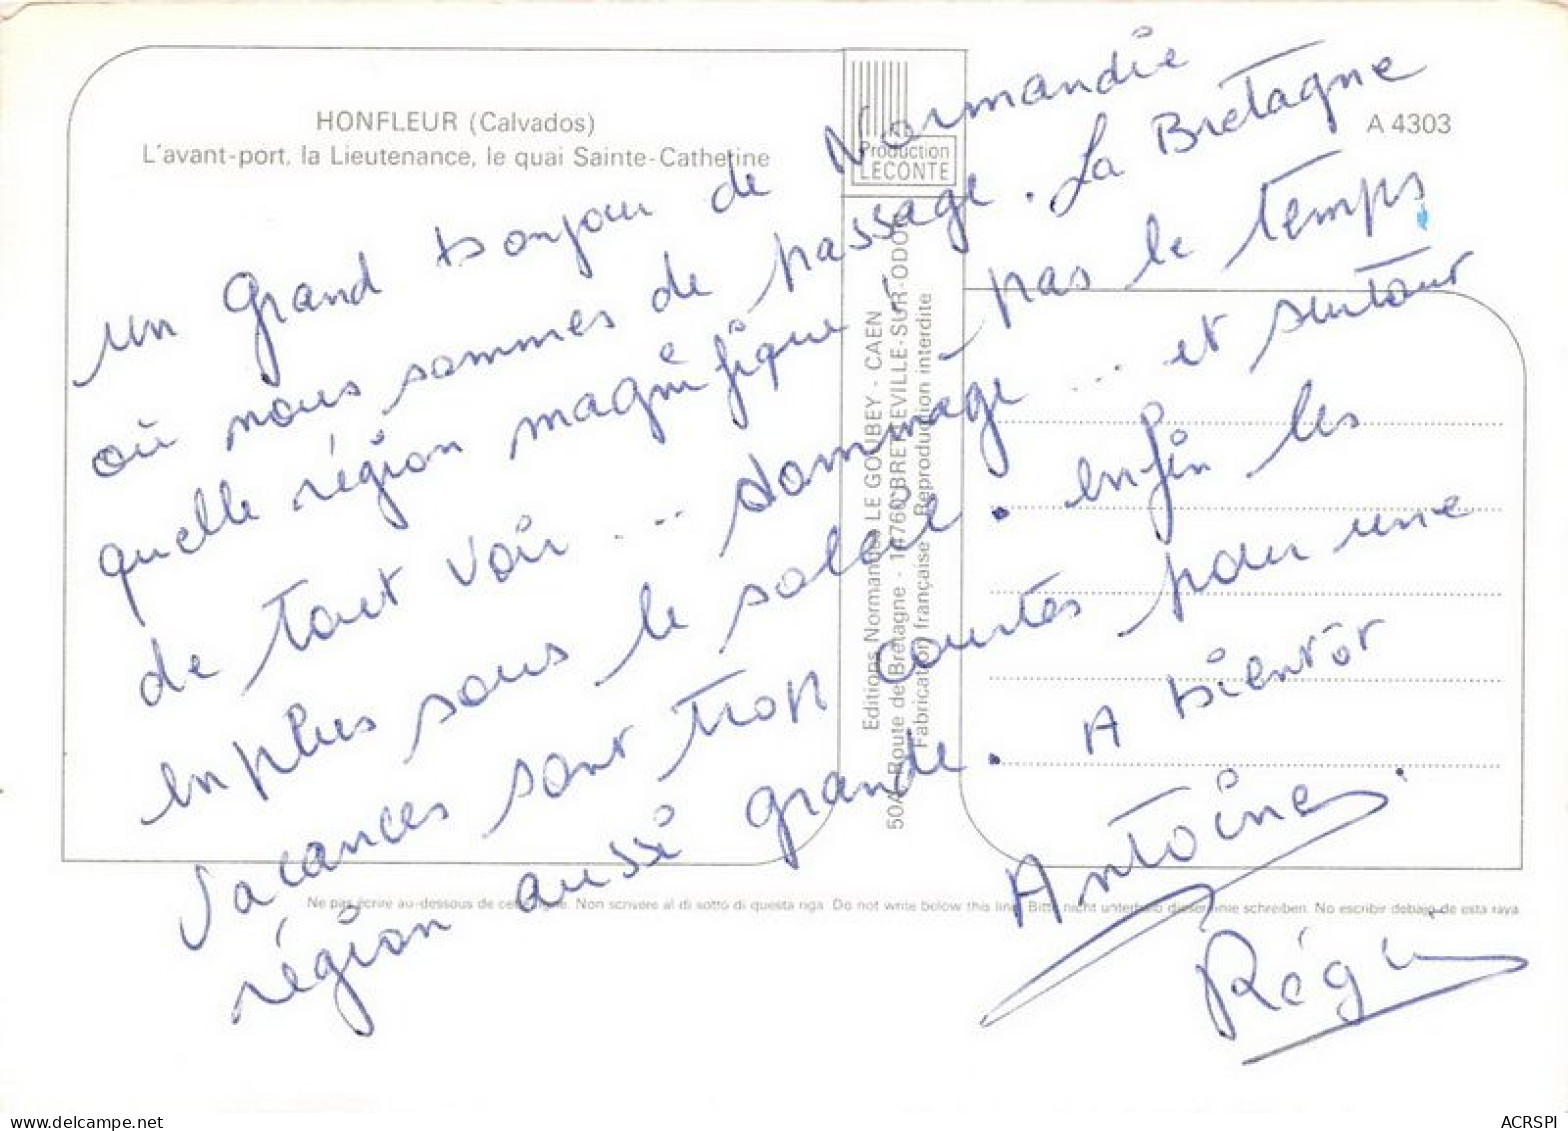 HONFLEUR (Calvados)
L'avant-port, la Lieutenance, le quai Sainte-Catherine
A 4303
Production
LECONTE
un grand bonjour de Normandie
où nous sommes de passage. La Bretagne
quelle région magnifique ! pas le temps
de tout voir ... dommage ... et surtout
en plus sous le soleil. enfin les
vacances sont trop courtes pour une
région aussi grande. A bientôt
Antoine
Régi
Editions Normandes LE GOUBEY - CAEN
50A, Route de Bretagne - 14760 BRETTEVILLE-SUR-ODON
Fabrication française - Reproduction interdite
Ne pas écrire au-dessous de cette ligne. Non scrivere al di sotto di questa riga. Do not write below this line. Bitte nicht unterhalb dieser Linie schreiben. No escribir debajo de esta raya
delcampe.net
ACRSPI